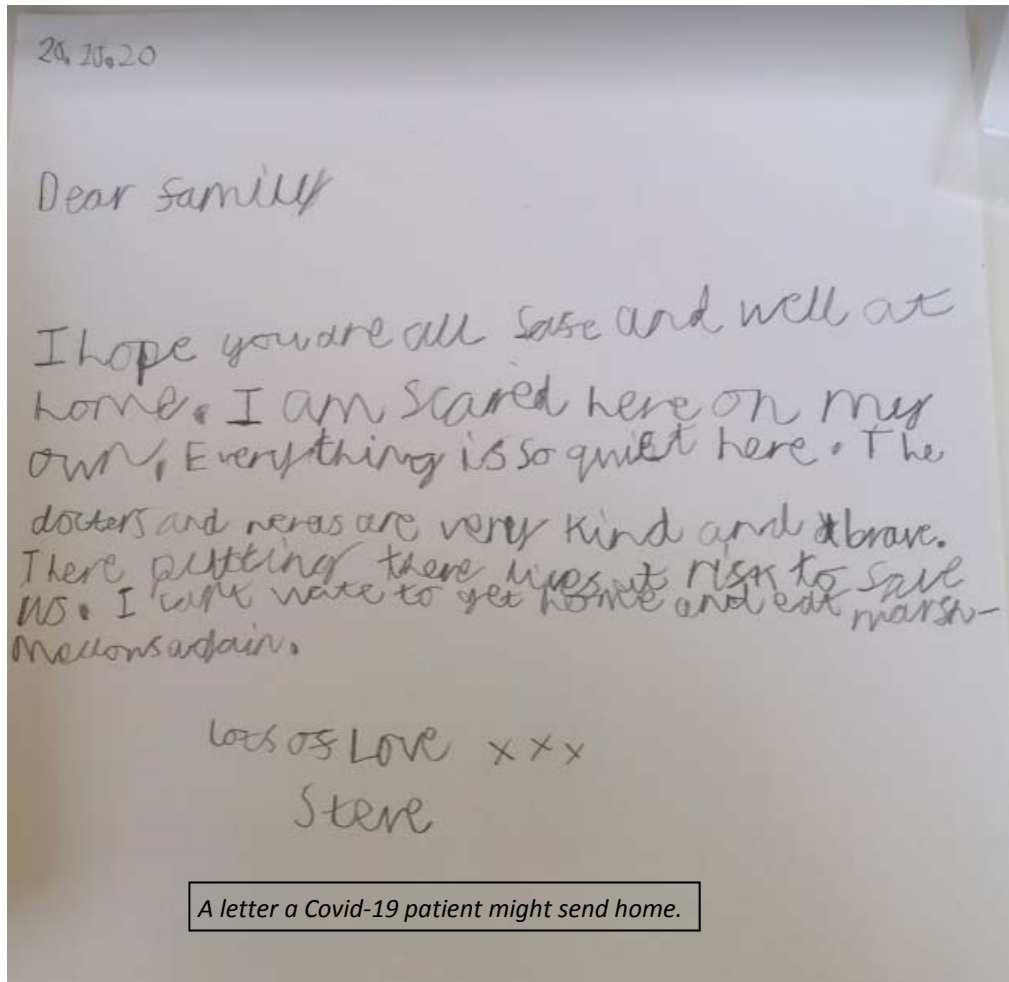 20.20.20
Dear family
I hope you are all safe and well at
home. I am scared here on my
own. Everything is so quiet here. The
docters and neras are very kind and brave.
There putting there lives at risk to save
us. I cant wate to get home and eat marsh-
mellons again.
lots of Love xxx
Steve
A letter a Covid-19 patient might send home.